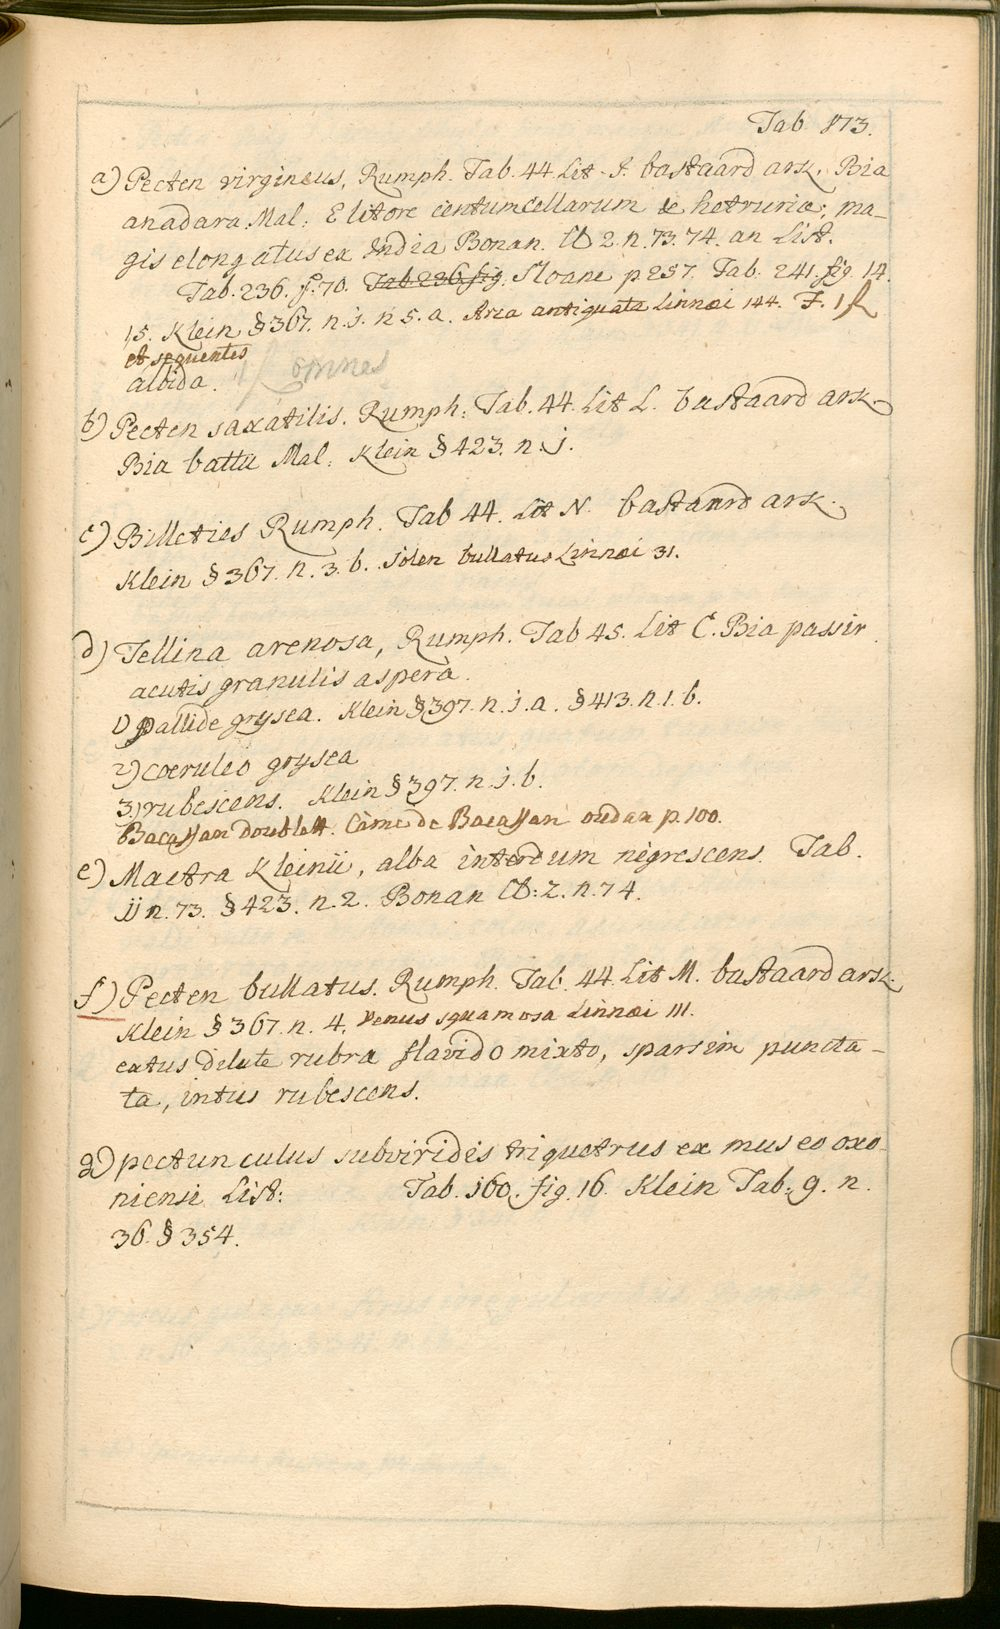 Tab 873.
a) Pecten virgineus, Rumph. Tab. 44 Lit. I. bastaard ark. Bia
anadara Mal: E litore centumcellarum & hetruriæ; ma-
gis elongatus ex India Bonan. Cl 2. n. 73. 74. an List.
Tab. 236. f. 70. Tab. 236 fig. Sloane p 257. Tab. 241. fig. 14.
15. Klein § 367. n. j. n 5. a. Arca antiquata Linnæi 144. F. 1
et sequentes
albida. omnes
b) Pecten saxatilis. Rumph: Tab. 44. Lit L. bastaard ark.
Bia battu Mal: Klein § 423. n. j.
c) Billeties Rumph. Tab 44. Lit N. bastaard ark.
Klein § 367. n. 3. b. Solen bullatus Linnæi 31.
d) Tellina arenosa, Rumph. Tab 45. Lit C. Bia passir
acutis granulis aspera.
1) pallide grysea. Klein § 397. n. j. a. § 413. n. 1. b.
2) coeruleo grysea
3) rubescens. Klein § 397. n. j. b.
Bacassan doublett. Came de Bacassan oudaan p. 100.
e) Mactra Kleinii, alba interdum nigrescens. Tab.
jj n. 73. § 423. n. 2. Bonan Cl: 2. n. 74.
f) Pecten bullatus. Rumph. Tab. 44. Lit M. bastaard ark.
Klein § 367. n. 4. Venus squamosa Linnæi 111.
extus dilute rubra flavido mixto, sparsim puncta-
ta, intus rubescens.
g) pectunculus subviridis triquetrus ex museo oxo-
niensi List: Tab. 160. fig. 16. Klein Tab: 9. n.
36. § 354.